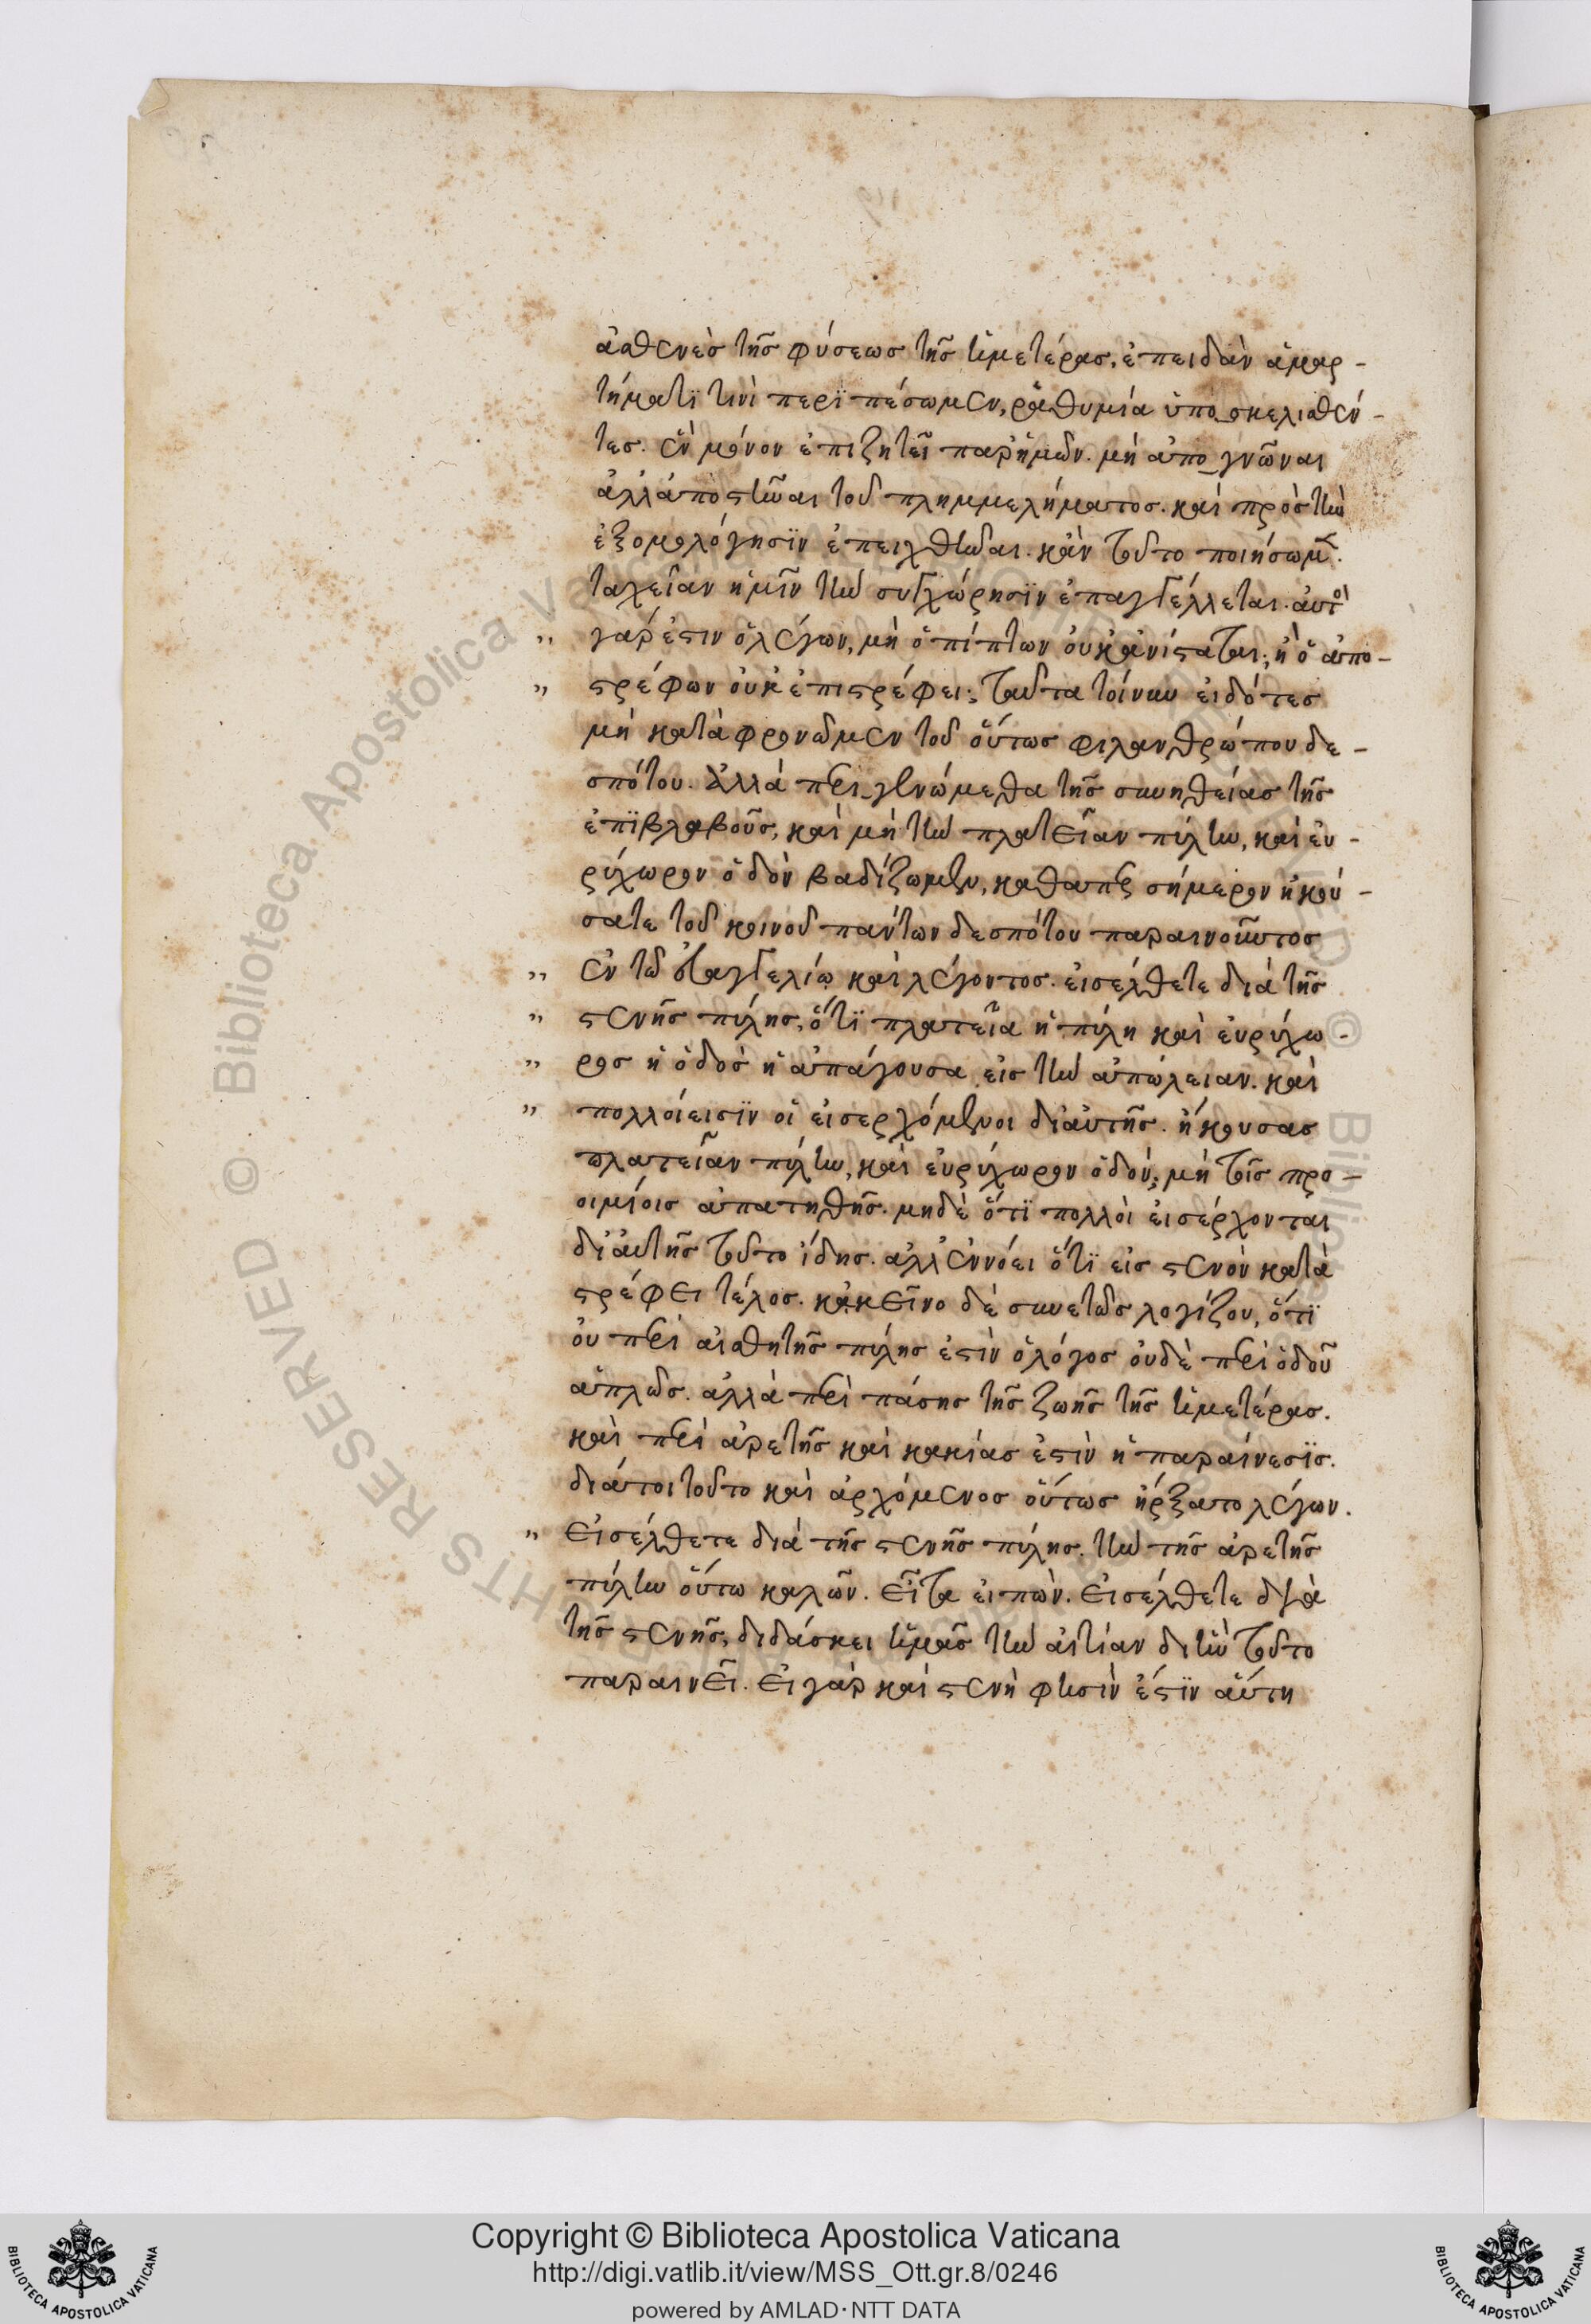 ἀσθενὲς τῆς φύσεως τῆς ἡμετέρας. ἐπειδὰν ἁμαρ-
τήματϊ τινὶ περϊπέσωμεν, ῥαθυμία ὑποσκελισθέν-
τες. ἓν μόνον ἐπιζητεῖ παρ' ἡμῶν. μὴ ἀπογνῶναι
ἀλλ' ἀποστῆναι τοῦ πλημμελήματος. καὶ πρὸς τὴν
ἐξομολόγησϊν ἐπειχθῆναι. κἂν τοῦτο ποιήσωμεν.
ταχεῖαν ἡμῖν τὴν συγχώρησϊν ἐπαγγέλλεται. αὐτὸς
" γάρ ἐστιν ὁ λέγων, μὴ ὁ πίπτων οὐκ ἀνίσταται; ἢ ὁ ἀπο-
" στρέφων οὐκ ἐπιστρέφει; ταῦτα τοίνυν εἰδότες
μὴ καταφρονῶμεν τοῦ οὕτως φιλανθρώπου δε-
σπότου. ἀλλὰ περιγενώμεθα τῆς συνηθείας τῆς
ἐπϊβλαβοῦς, καὶ μὴ τὴν πλατεῖαν πύλην, καὶ εὐ-
ρύχωρον ὁδὸν βαδίζωμεν, καθάπερ σήμερον ἠκού-
σατε τοῦ κοινοῦ πάντων δεσπότου παραινοῦντος
" ἐν τῷ εὐαγγελίῳ καὶ λέγοντος. εἰσέλθετε διὰ τῆς
" στενῆς πύλης, ὅτϊ πλατεῖα ἡ πύλη καὶ εὐρύχω-
" ρος ἡ ὁδὸς ἡ ἀπάγουσα εἰς τὴν ἀπώλειαν. καὶ
" πολλοί εισϊν οἱ εἰσερχόμενοι δι' αὐτῆς. ἤκουσας
πλατεῖαν πύλην, καὶ εὐρύχωρον ὁδόν; μὴ τοῖς προ-
οιμίοις ἀπατηθῇς. μηδὲ ὅτϊ πολλοὶ εἰσέρχονται
δι' αὐτῆς τοῦτο ἴδῃς. ἀλλ' ἐννόει ὅτϊ εἰς στενὸν κατα
στρέφει τέλος. κἀκεῖνο δὲ συνετῶς λογίζου, ὅτϊ
οὐ περὶ αἰσθητῆς πύλης ἐστὶν ὁ λόγος οὐδὲ περὶ ὁδοῦ
ἁπλῶς. ἀλλὰ περὶ πάσης τῆς ζωῆς τῆς ἡμετέρας.
καὶ περὶ ἀρετῆς καὶ κακίας ἐστὶν ἡ παραίνεσϊς.
διάτοιτοῦτο καὶ ἀρχόμενος οὕτως ἤρξατο λέγων.
" Εἰσέλθετε διὰ τῆς στενῆς πύλης. τὴν τῆς ἀρετῆς
πύλην οὕτω καλῶν. Εἶτα εἰπὼν. Εἰσέλθετε διὰ
τῆς στενῆς, διδάσκει ἡμᾶς τὴν αἰτίαν δι' ἣν τοῦτο
παραινεῖ. Εἰ γὰρ καὶ στενὴ φησὶν ἐστϊν αὕτη
Copyright © Biblioteca Apostolica Vaticana
http://digi.vatlib.it/view/MSS_Ott.gr.8/0246
powered by AMLAD·NTT DATA